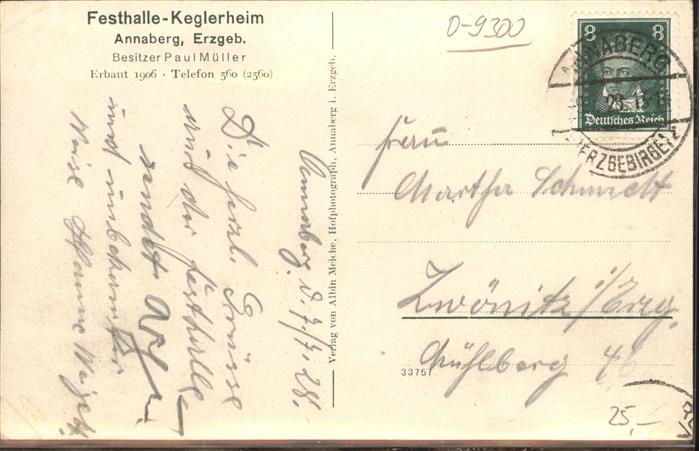 Festhalle-Keglerheim
Annaberg, Erzgeb.
Besitzer Paul Müller
Erbaut 1906 · Telefon 560 (2360)
0-9300
8 8
Deutsches Reich
ANNABERG
(ERZGEBIRGE)
Annaberg, d. 7./7. 28.
Die herzl. Grüsse
aus der Festhalle
sendet
und unbekannter
Weise
Verlag von Albin Meiche, Hofphotograph, Annaberg i. Erzgeb.
Frau
Martha Schmidt
Zwönitz i/Erzg.
Mühlberg 46
33757
25,-